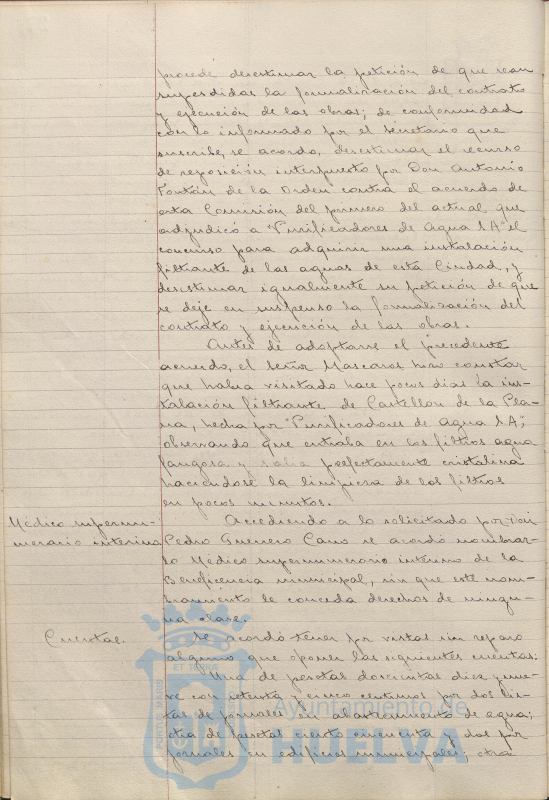 procede desestimar la petición de que sean
suspendidas la formalización del contrato
y ejecución de las obras; de conformidad
con lo informado por el Secretario que
suscribe, se acordo, desestimar el recurso
de reposición interpuesto por Don Antonio
Fontán de la Orden contra el acuerdo de
esta Comisión del primero del actual que
adjudicó a "Purificadores de Agua S A" el
concurso para adquirir una instalación
filtrante de las aguas de esta Ciudad, y
desestimar igualmente su petición de que
se deje en suspenso la formalización del
contrato y ejecución de las obras.
Antes de adoptarse el precedente
acuerdo, el señor Mascaros hizo constar
que habia visitado hace pocos dias la ins-
talación filtrante de Castellón de la Pla-
na, hecha por "Purificadores de Agua S A",
observando que entraba en los filtros agua
fangosa y salia perfectamente cristalina
haciendose la limpieza de los filtros
en pocos minutos.
Médico supernu-
merario interino
Accediendo a lo solicitado por Don
Pedro Guerrero Cano se acordó nombrar-
lo Medico supernumerario interino de la
Beneficencia municipal, sin que este nom-
bramiento le conceda derechos de ningu-
na clase.
Cuentas.
Se acordó tener por vistas sin reparo
alguno que oponer las siguientes cuentas:
Una de pesetas doscientas diez y nue-
ve con setenta y cinco centimos por dos lis-
tas de jornales en abastecimiento de agua;
otra de pesetas ciento cincuenta y dos por
jornales en edificios municipales; otra
Ayuntamiento de
HUELVA